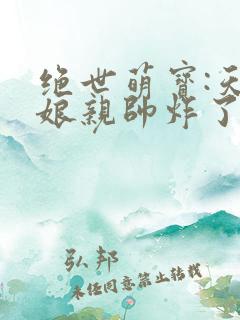 绝世萌宝:天
娘亲帅炸了
弘邦
未经同意禁止转载